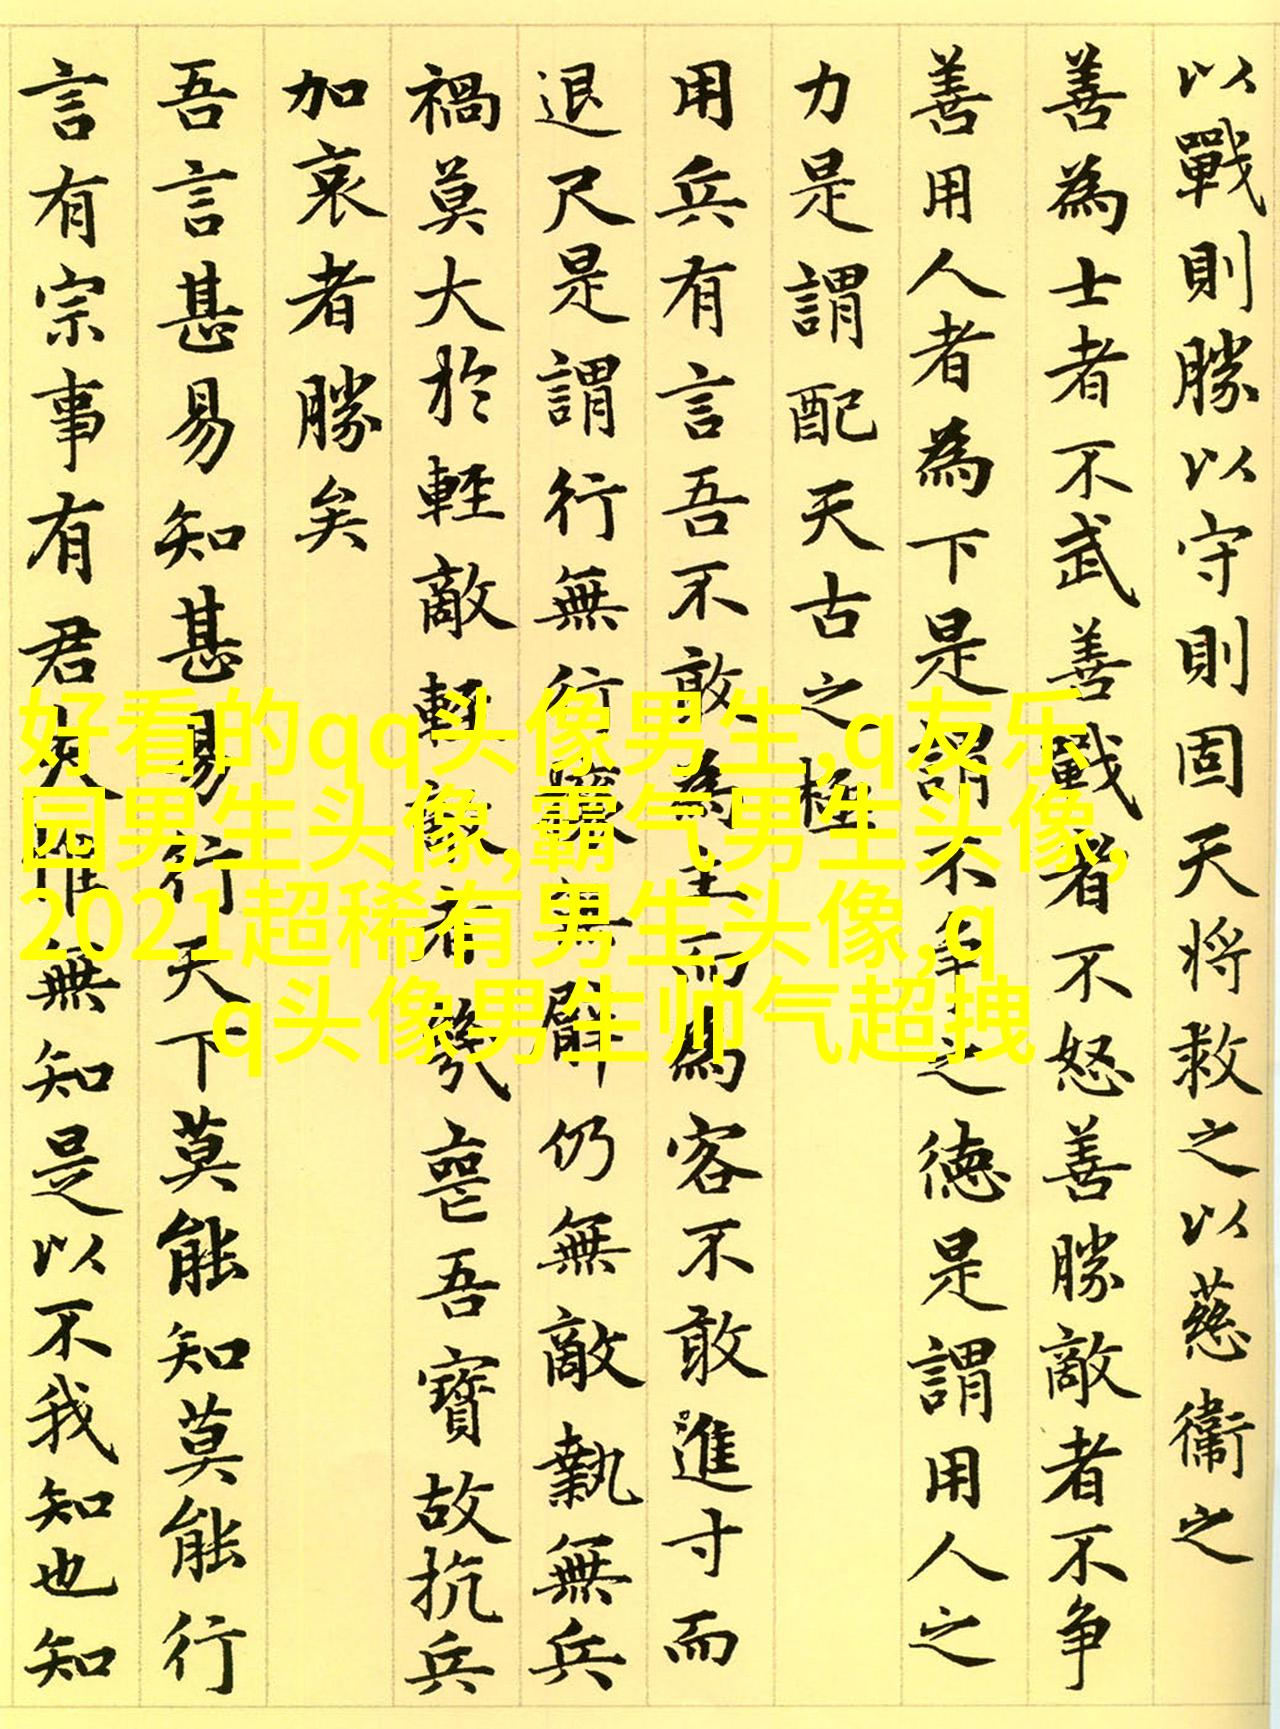 以戰則勝以守則固天将救之以慈衞之
善為士者不武善戰者不怒善勝敵者不争
善用人者為下是謂不争之德是謂用人之
力是謂配天古之極
用兵有言吾不敢為主而為客不敢進寸而
退尺是謂行無行攘無臂仍無敵執無兵
禍莫大於輕敵輕敵者幾喪吾寶故抗兵
加哀者勝矣
吾言甚易知甚易行天下莫能知莫能行
言有宗事有君夫惟無知是以不我知也知
好看的qq头像男生,q友乐
园男生头像,霸气男生头像,
2021超稀有男生头像,q
q头像男生帅气超拽